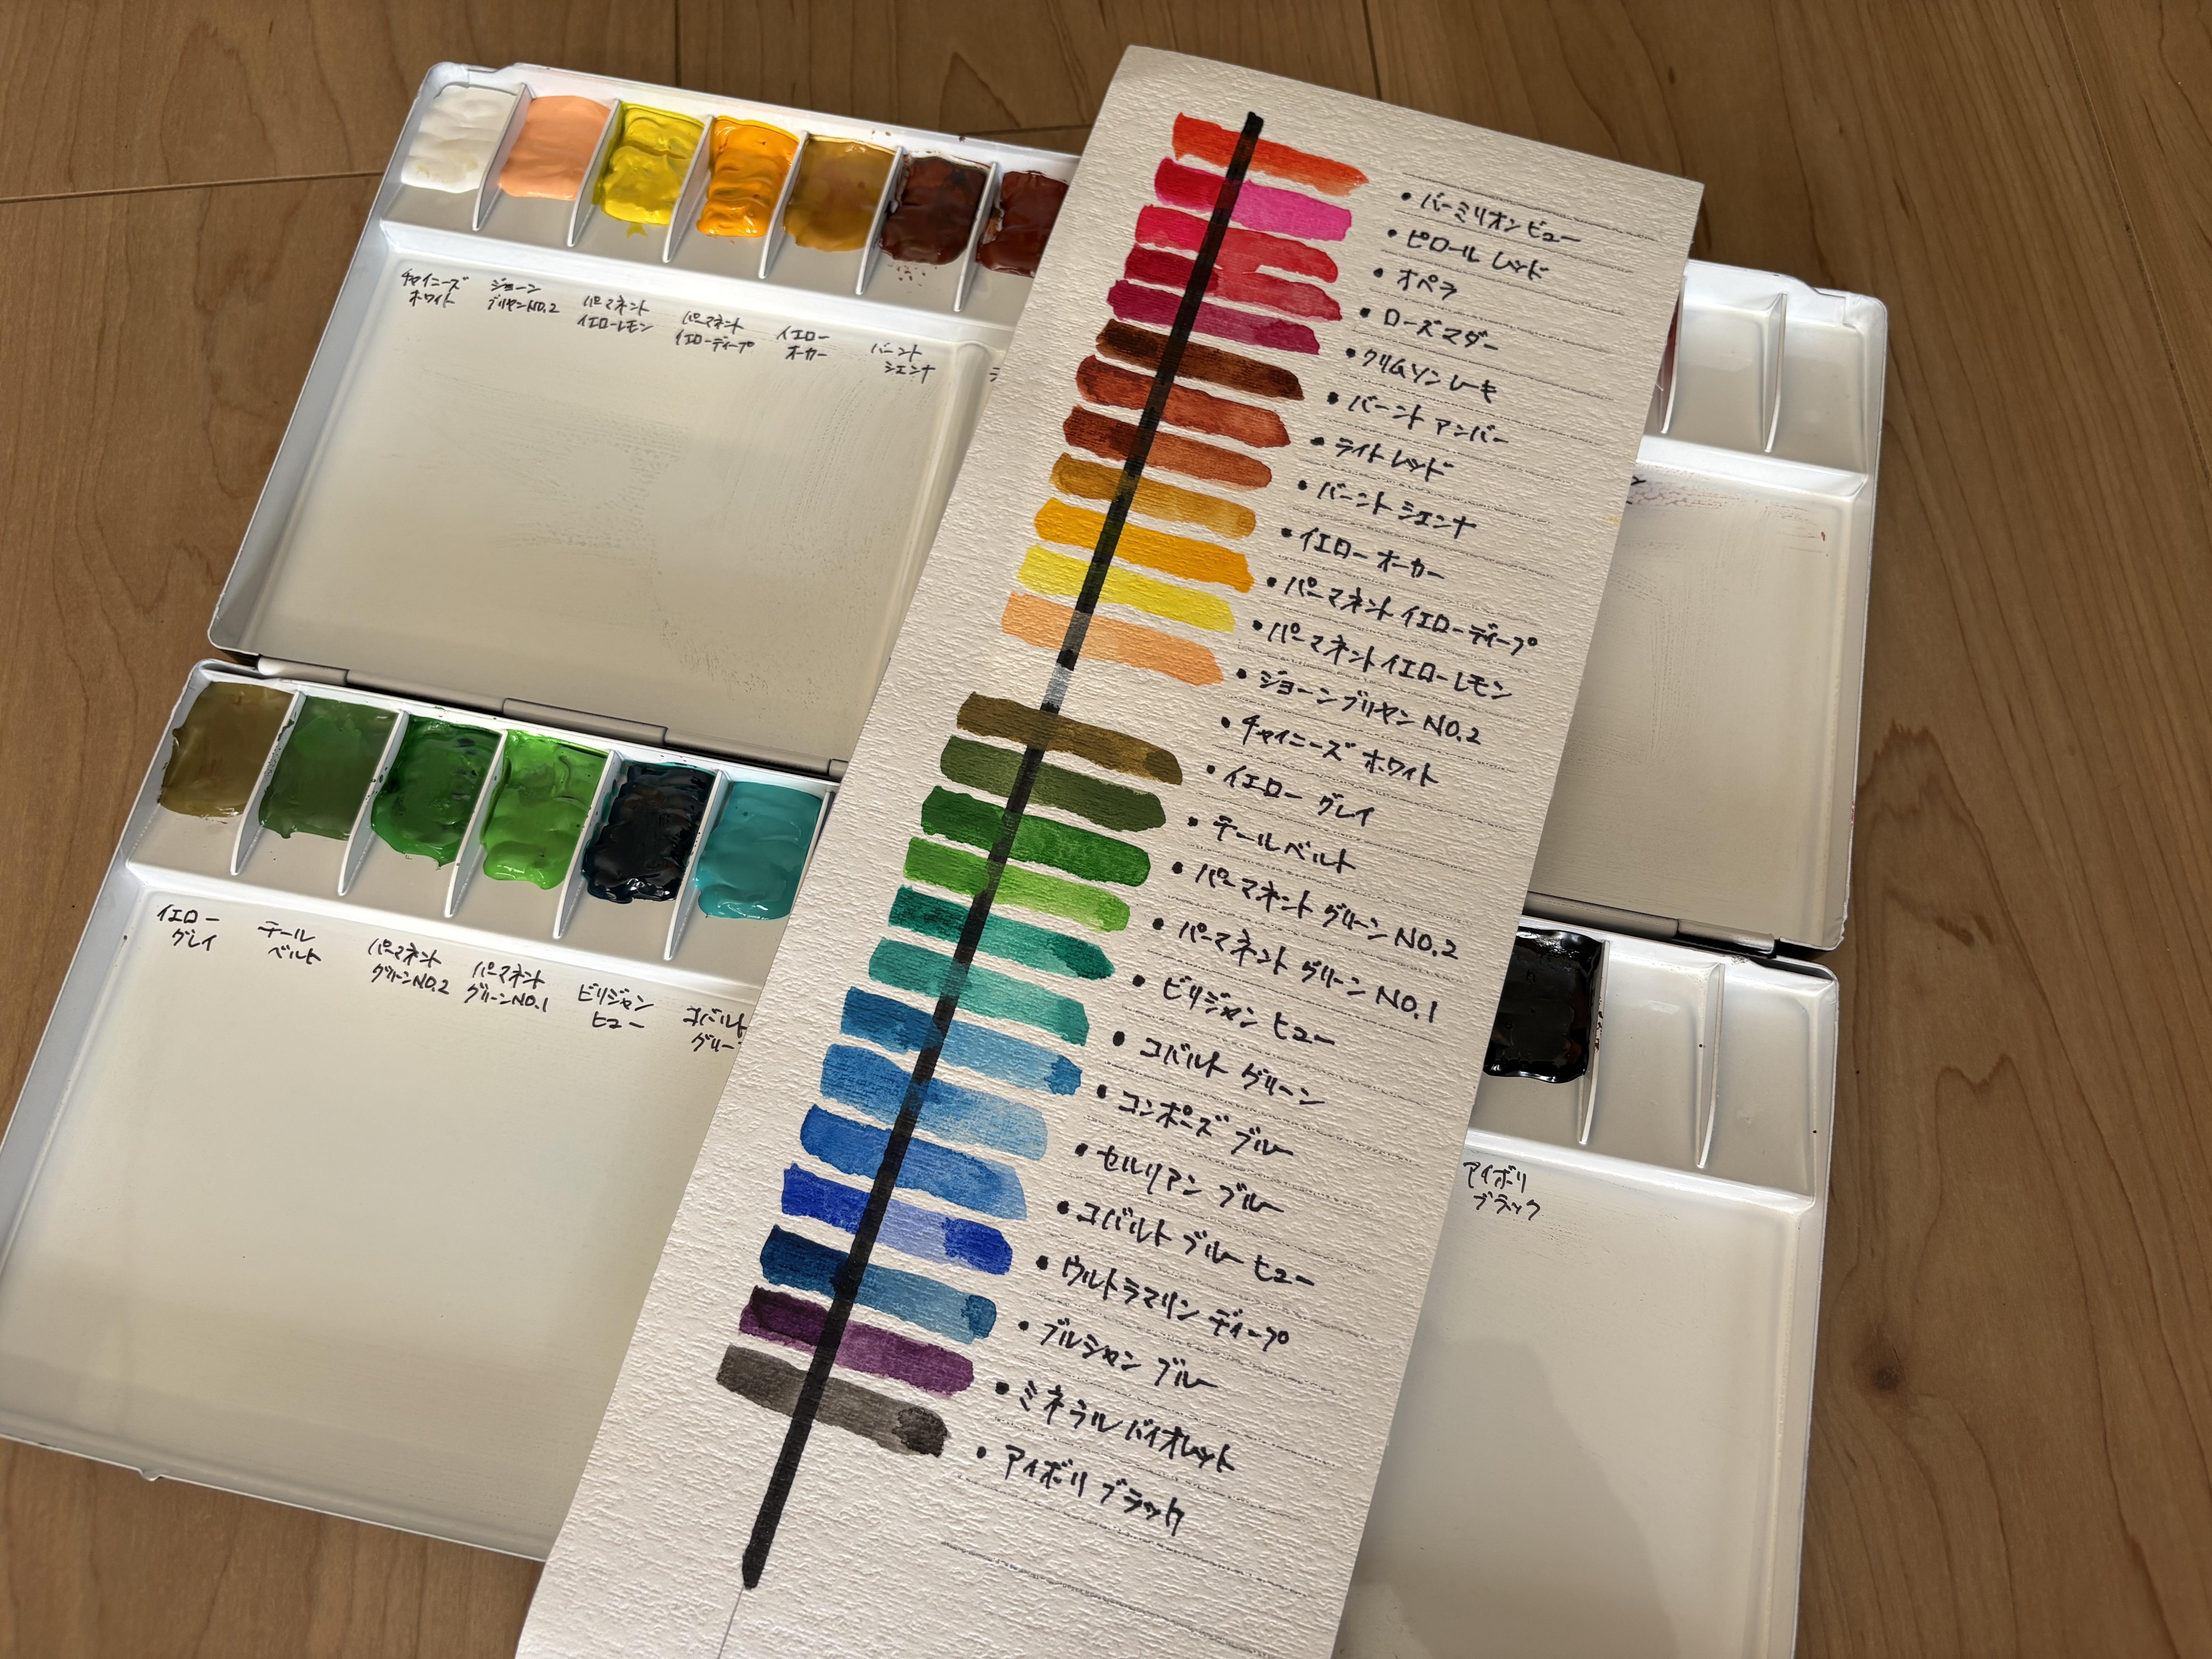 チャイニーズ
ホワイト
ジョーン
ブリヤンNO.2
パーマネント
イエローレモン
パーマネント
イエローディープ
イエロー
オーカー
バーント
シエンナ
・バーミリオンビュー
・ピロール レッド
・オペラ
・ローズマダー
・クリムソンレーキ
・バーント アンバー
・ライトレッド
・バーント シエンナ
・イエロー オーカー
・パーマネント イエローディープ
・パーマネントイエローレモン
・ジョーンブリヤン NO.2
・チャイニーズ ホワイト
・イエロー グレイ
・テールベルト
・パーマネント グリーン NO.2
・パーマネント グリーン NO.1
・ビリジャン ヒュー
・コバルト グリーン
・コンポーズ ブルー
・セルリアン ブルー
・コバルト ブルー ヒュー
・ウルトラマリン ディープ
・プルシャン ブルー
・ミネラルバイオレット
・アイボリ ブラック
イエロー
グレイ
テール
ベルト
パーマネント
グリーンNO.2
パーマネント
グリーンNO.1
ビリジャン
ヒュー
コバルト
グリー
アイボリ
ブラック